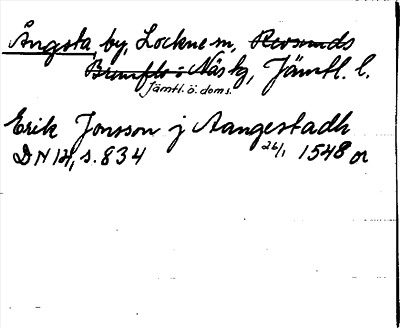 Ångsta, by, Lockne sn, Revsunds
Brunflo o Näs tg, Jämtl. l.
Jämtl. ö. doms.
Erik Jonsson j Aangestadh
DN 14, s. 834 26/1 1548 or